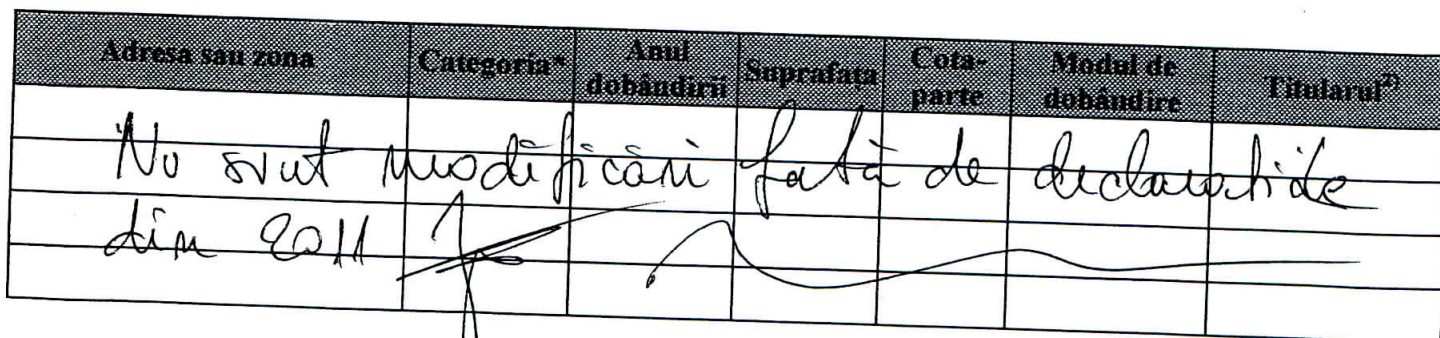 Adresa sau zona Categoria* Anul dobândirii Suprafața Cota-parte Modul de dobândire Titularul²⁾
Nu sunt modificări față de declarațiile
din 2011